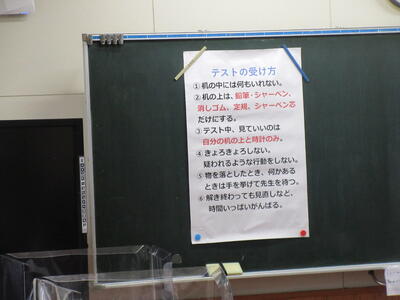 テストの受け方
①机の中には何もいれない。
②机の上は、鉛筆・シャーペン、
消しゴム、定規、シャーペン芯
だけにする。
③テスト中、見ていいのは
自分の机の上と時計のみ。
④きょろきょろしない。
疑われるような行動をしない。
⑤物を落としたとき、何かある
ときは手を挙げて先生を待つ。
⑥解き終わっても見直しなど、
時間いっぱいがんばる。